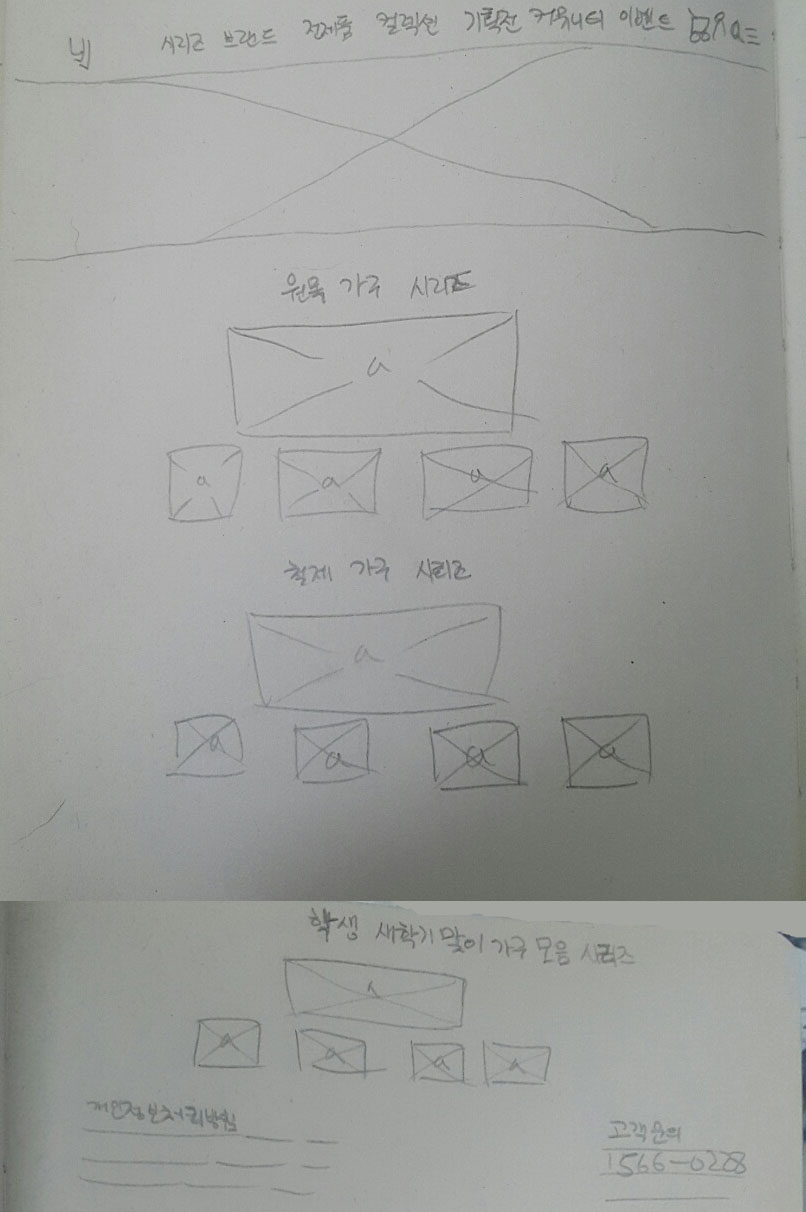 시리즈 브랜드 전제품 컬렉션 기획전 커뮤니티 이벤트
원목 가구 시리즈
a
a a a a
철제 가구 시리즈
a
a a a a
학생 새학기맞이 가구 모음 시리즈
a
a a a a
개인정보처리방침
고객문의
1566-0228